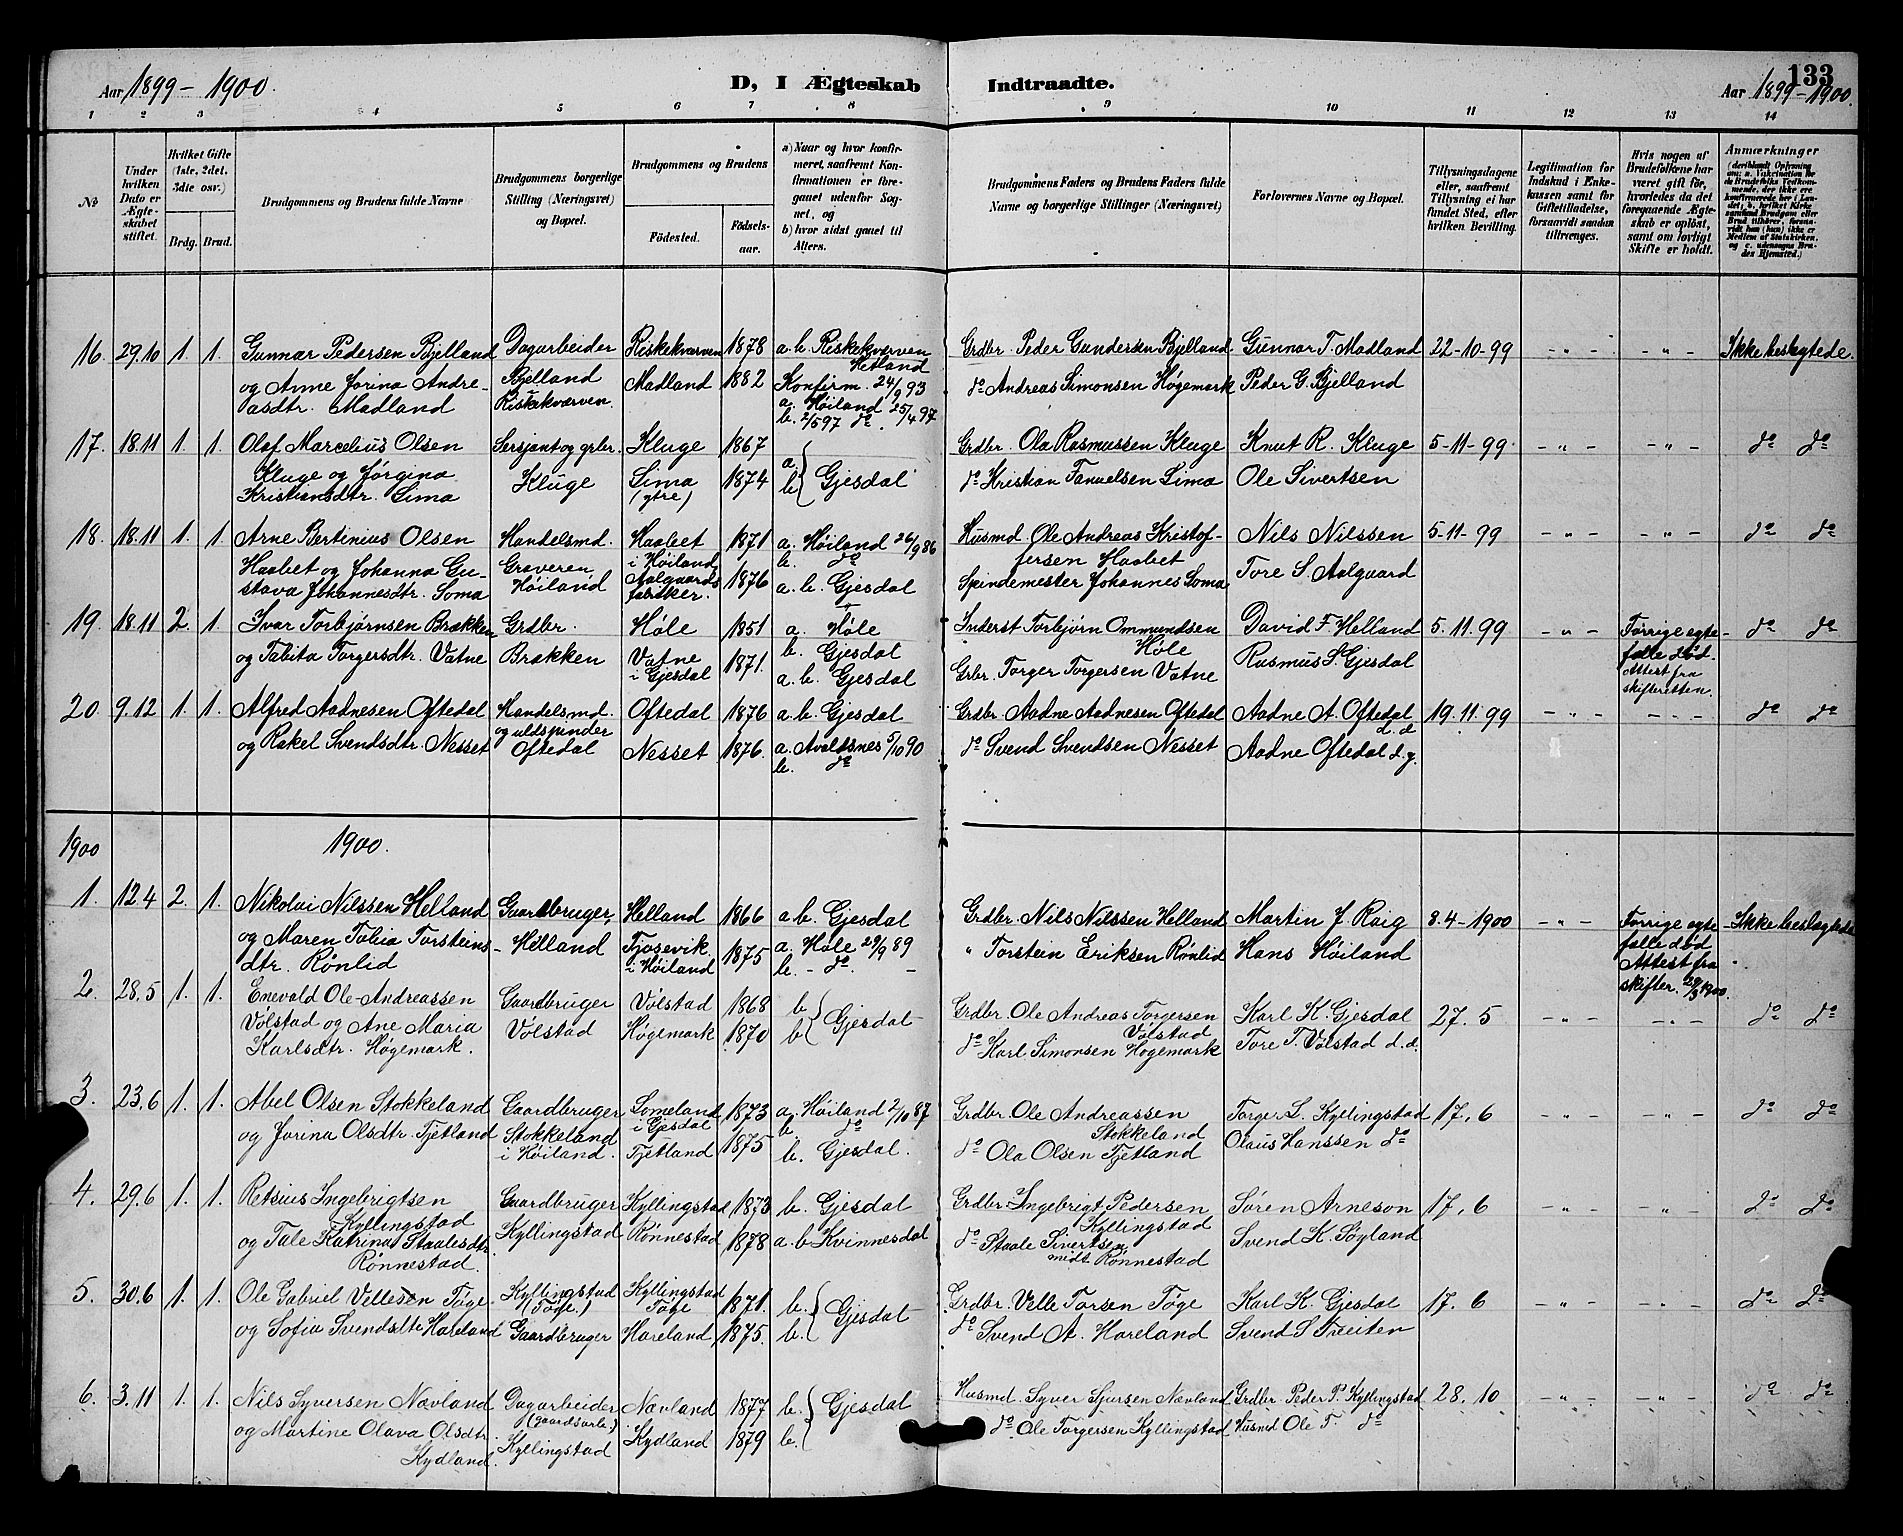 133
Aar 1899 – 1900.
D, I Ægteskab Indtraadte.
Aar 1899 – 1900.
1 2 3 4 5 6 7 8 9 10 11 12 13 14
No
Under hvilken Dato er Ægteskabet stiftet.
Hvilket Gifte (1ste, 2det, 3die osv.)
Brdg. Brud.
Brudgommens og Brudens fulde Navne
Brudgommens borgerlige Stilling (Næringsvei) og Bopæl.
Brudgommens og Brudens
Fødested. Fødsels-aar.
a) Naar og hvor konfirmeret, saafremt Konfirmationen er foregaaet udenfor Sognet, og
b) hvor sidst gaaet til Alters.
Brudgommens Faders og Brudens Faders fulde Navne og borgerlige Stillinger (Næringsvei)
Forlovernes Navne og Bopæl.
Tillysningsdagene eller, saafremt Tillysning ei har fundet Sted, efter hvilken Bevilling.
Legitimation for Indskud i Enkekassen samt for Giftetilladelse, forsaavidt saadan tiltrænges.
Hvis nogen af Brudefolkene har været gift før, hvorledes da det foregaaende Ægteskab er opløst, samt om lovligt Skifte er holdt.
Anmærkninger
16. 29.10 1. 1. Gunnar Pedersen Bjelland Dagarbeider Riskekværven 1878 a. b. Riskekværven Grdbr. Peder Gundersen Bjelland Gunnar T. Madland 22-10-99 – „ – – „ – Ikke beslegtede.
Hetland
og Anne Jorina Andre- Bjelland Madland 1882 Konfirm. 24/9 93 do Andreas Simonsen Høgemark Peder G. Bjelland
asdtr. Madland Riskekværven. a. Høiland 25/4 97
b. 2/5 97 do.
17. 18.11 1. 1. Olaf Marcelius Olsen Sersjant og grbr. Kluge 1867 a. Grdbr. Ola Rasmussen Kluge Knut R. Kluge 5-11-99. – „ – – „ – do do
Kluge og Jørgina Kluge Lima 1874 b. Gjesdal do Kristian Tanuelsen Lima Ole Sivertsen
Kristiansdtr. Lima (ytre)
18. 18.11 1. 1. Arne Bertinius Olsen Handelsmd. Haabet 1871 a. Høiland 26/9 86 Husmd Ole Andreas Kristof- Nils Nilssen 5-11-99 – „ – – „ – do do
Haabet og Johanna Gu- Graveren i Høiland b. do fersen Haabet
stava Johannesdtr. Soma Høiland Aalgaards fabriker. 1876 a. b. Gjesdal Spindemester Johannes Soma Tore S. Aalgaard
19. 18.11 2. 1. Ivar Torbjørnsen Brækken Grdbr. Høle 1851 a. Høle Inderst Torbjørn Ommundsen David F. Helland 5.11.99 – „ – Forrige egte- do do
b. Gjesdal Høle fælle død.
og Tabita Torgersdtr. Vatne Brækken Vatne i Gjesdal 1871. a. b. Gjesdal Grbr. Torger Torgersen Vatne Rasmus S. Gjesdal Attest fra
skifteretten.
20 9.12 1. 1. Alfred Aadnesen Oftedal Handelsmd. Oftedal 1876 a. b. Gjesdal Grdbr Aadne Aadnesen Oftedal Aadne A. Oftedal d. d 19.11.99 – „ – – „ – do do
og uldspinder
og Rakel Svendsdtr. Nesset Oftedal Nesset 1876. a. Avaldsnes 5/10 90 do Svend Svendsen Nesset Aadne Oftedal d. y.
b. do
1900 1900.
1. 12.4 2. 1. Nikolai Nilssen Helland Gaardbruger Helland 1866 a b. Gjesdal Grdbr. Nils Nilssen Helland Martin J. Raig 8.4-1900 – „ – Forrige egte- Ikke beslegtede
og Maren Tobia Torsteins- Helland Tjosevik 1875 a. Høle 29/9 89 „ Torstein Eriksen Rønlid Hans Høiland fælle død
dtr. Rønlid i Høiland b. – do. – Attest fra
skifter. 29/3 1900.
2. 28.5 1. 1. Enevald Ole Andreassen Gaardbruger Vølstad 1868 b. Grdbr. Ole Andreas Torgersen Karl K. Gjesdal 27. 5 – „ – – „ – do do
Vølstad
Vølstad og Ane Maria Vølstad Høgemark 1870 b. Gjesdal do Karl Simonsen Høgemark Tore T. Vølstad d. d.
Karlsdtr. Høgemark.
3. 23.6 1. 1. Abel Olsen Stokkeland Gaardbruger Someland i Gjesdal 1873 a. Høiland 2/10 87 Grdbr. Ole Andreassen Torger L. Kyllingstad 17. 6 – „ – – „ – do do
b. do Stokkeland
og Jorina Olsdtr. Tjetland Stokkeland i Høiland. Tjetland 1875 b. Gjesdal. do Ola Olsen Tjetland Olaus Hanssen do
4. 29.6 1. 1. Retsius Ingebrigtsen Gaardbruger Kyllingstad 1873 b. Gjesdal Grdbr. Ingebrigt Pedersen Søren Arneson 17. 6 – „ – – „ – do do
Kyllingstad Kyllingstad
og Tale Katrina Staalesdtr. Kyllingstad Rønnestad 1878 a. b Kvinnesdal do Staale Sivertsen Svend K. Søyland
Rønnestad. midt Rønnestad
5. 30.6 1. 1. Ole Gabriel Vellesen Tøge Kyllingstad (Tøge.) Kyllingstad Tøge 1871. b. Grdbr. Velle Torsen Tøge Karl K. Gjesdal 17. 6 – „ – – „ – do do
og Sofia Svendsdtr Hareland Gaardbruger Hareland 1875. b. Gjesdal do Svend A. Hareland Svend S Treiten
6. 3.11 1. 1. Nils Syversen Nævland Dagarbeider Nævland 1877 b. Husmd. Syver Sjursen Nævland Grdbr. Peder P. Kyllingstad 28. 10 – „ – – „ – do do
(gaardsarb.)
og Martine Olava Olsdtr. Kyllingstad Kydland 1879 b. Gjesdal do Ole Torgersen Kyllingstad Husmd Ole T. do
Kydland.